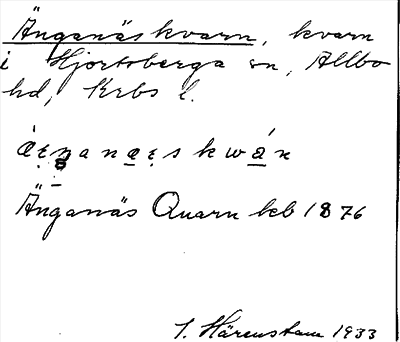 Änganäskvarn, kvarn
i Hjortsberga sn, Allbo
hd, Krbs l.
Änganäs Quarn kb 1876
I. Härenstam 1933